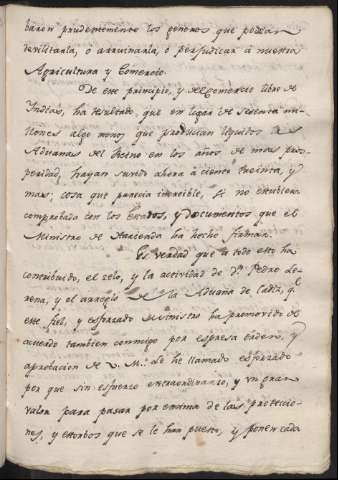 baron prudentemente los generos que podian
devilitarla, ó arruinarla, ó perjudicar á nuestra
Agricultura y Comercio.
De este principio, y del comercio libre de
Indias, ha resultado, que en lugar de sesenta mi-
llones algo menos, que producian liquidos las
Aduanas del Reino en los años de mas pros-
peridad, hayan suvido ahora á ciento treinta, y
mas; cosa que parecia increible, si no estubiera
comprobada con los Estados, y documentos que el
Ministro de Hacienda ha hecho firmar.
Es verdad que á todo esto ha
contribuido, el zelo, y la actividad de Dn. Pedro Le-
rena, y el arreglo de la Aduana de Cadiz, qe.
este fiel, y esforzado Ministro ha promovido de
acuerdo tambien conmigo por espresa orden, y
aprobacion de V. M.: Le he llamado esforzado
por que sin esfuerzo extraordinario, y un gran
valor para pasar por encima de las proteccio-
nes, y estorbos que se le han puesto, y ponen cada